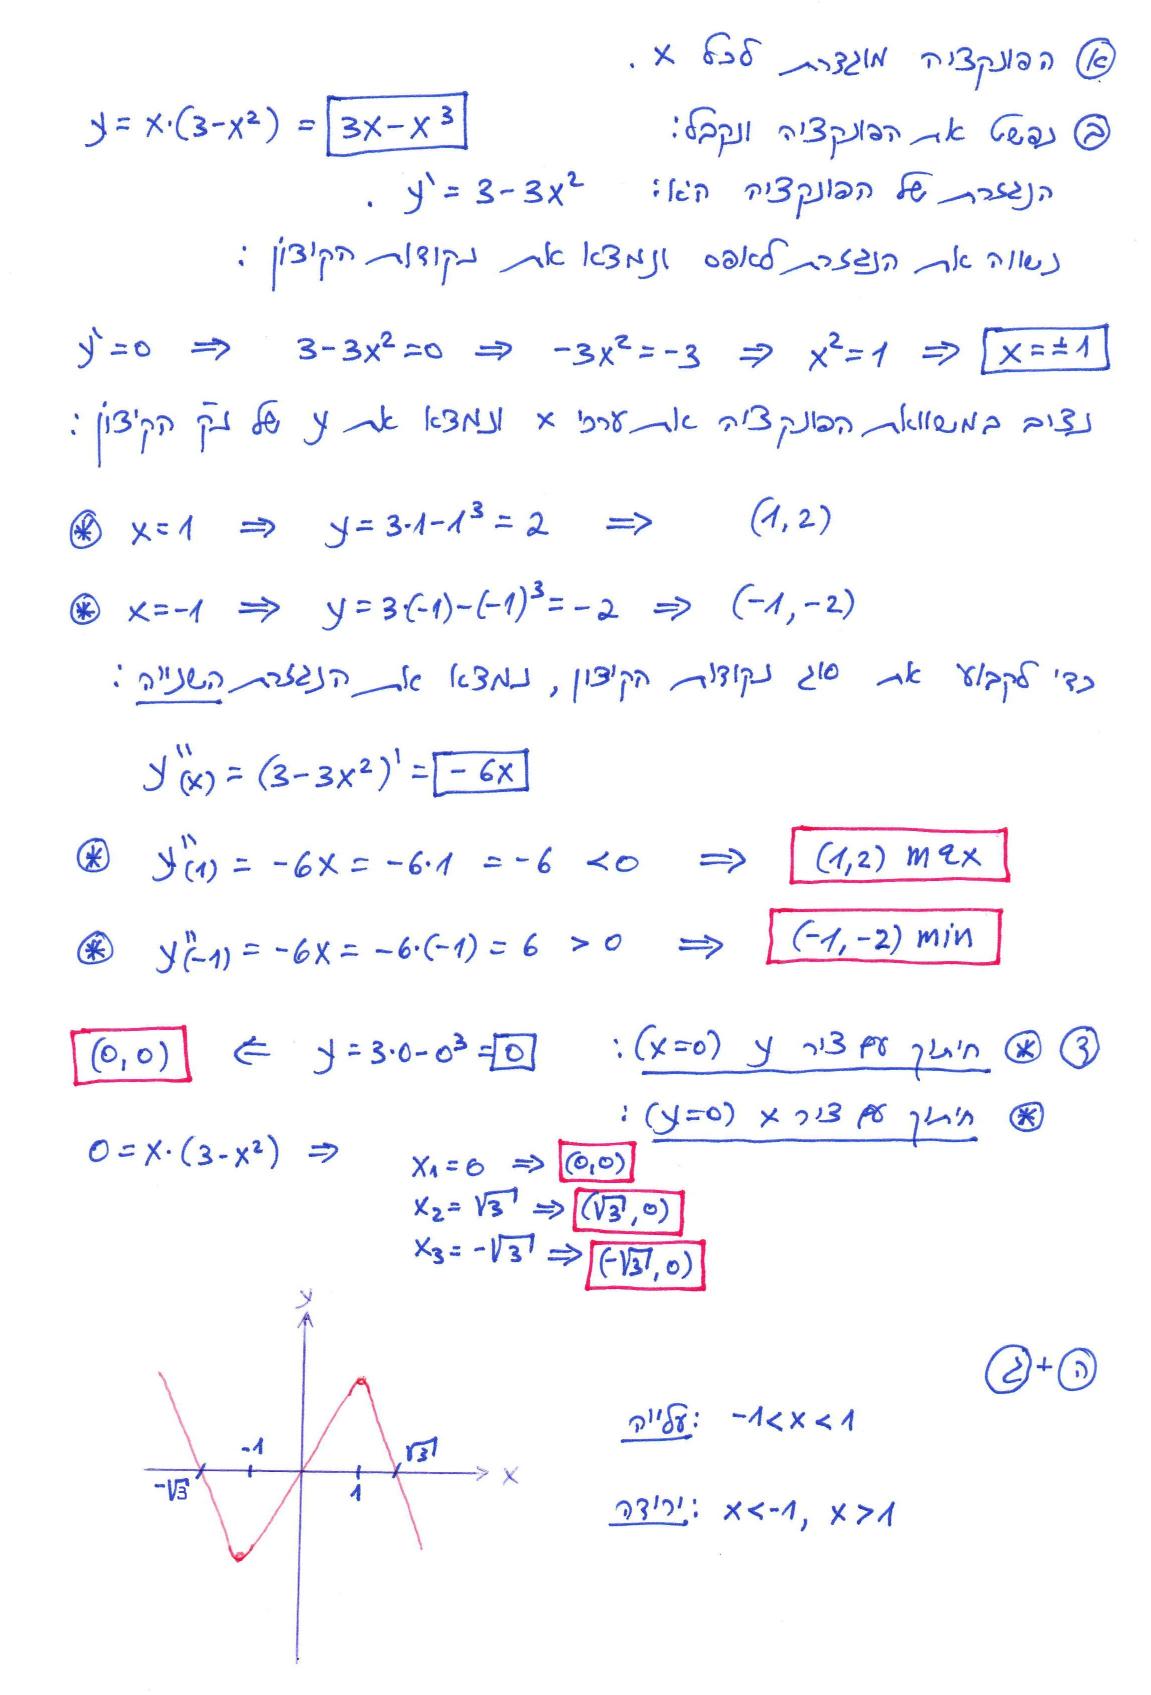 א הפונקציה מוגדרת לכל x .
ב נפשט את הפונקציה ונקבל: y = x·(3-x²) = 3x-x³
הנגזרת של הפונקציה היא: y' = 3-3x² .
נשווה את הנגזרת לאפס ונמצא את נקודות הקיצון :
y'=0 ⇒ 3-3x²=0 ⇒ -3x²=-3 ⇒ x²=1 ⇒ x=±1
נציב במשוואת הפונקציה את ערכי x ונמצא את y של נק' הקיצון :
* x=1 ⇒ y=3·1-1³=2 ⇒ (1,2)
* x=-1 ⇒ y=3·(-1)-(-1)³=-2 ⇒ (-1,-2)
כדי לקבוע את סוג נקודות הקיצון, נמצא את הנגזרת השנייה :
y''(x) = (3-3x²)' = -6x
* y''(1) = -6x = -6·1 = -6 <0 ⇒ (1,2) max
* y''(-1) = -6x = -6·(-1) = 6 > 0 ⇒ (-1,-2) min
ד * חיתוך עם ציר y (x=0) : y=3·0-0³=0 ⇐ (0,0)
* חיתוך עם ציר x (y=0) :
0=x·(3-x²) ⇒
x₁=0 ⇒ (0,0)
x₂=√3 ⇒ (√3,0)
x₃=-√3 ⇒ (-√3,0)
y
ה+ג
עלייה: -1<x<1
-1
√3
x
-√3
1
ירידה: x<-1, x>1